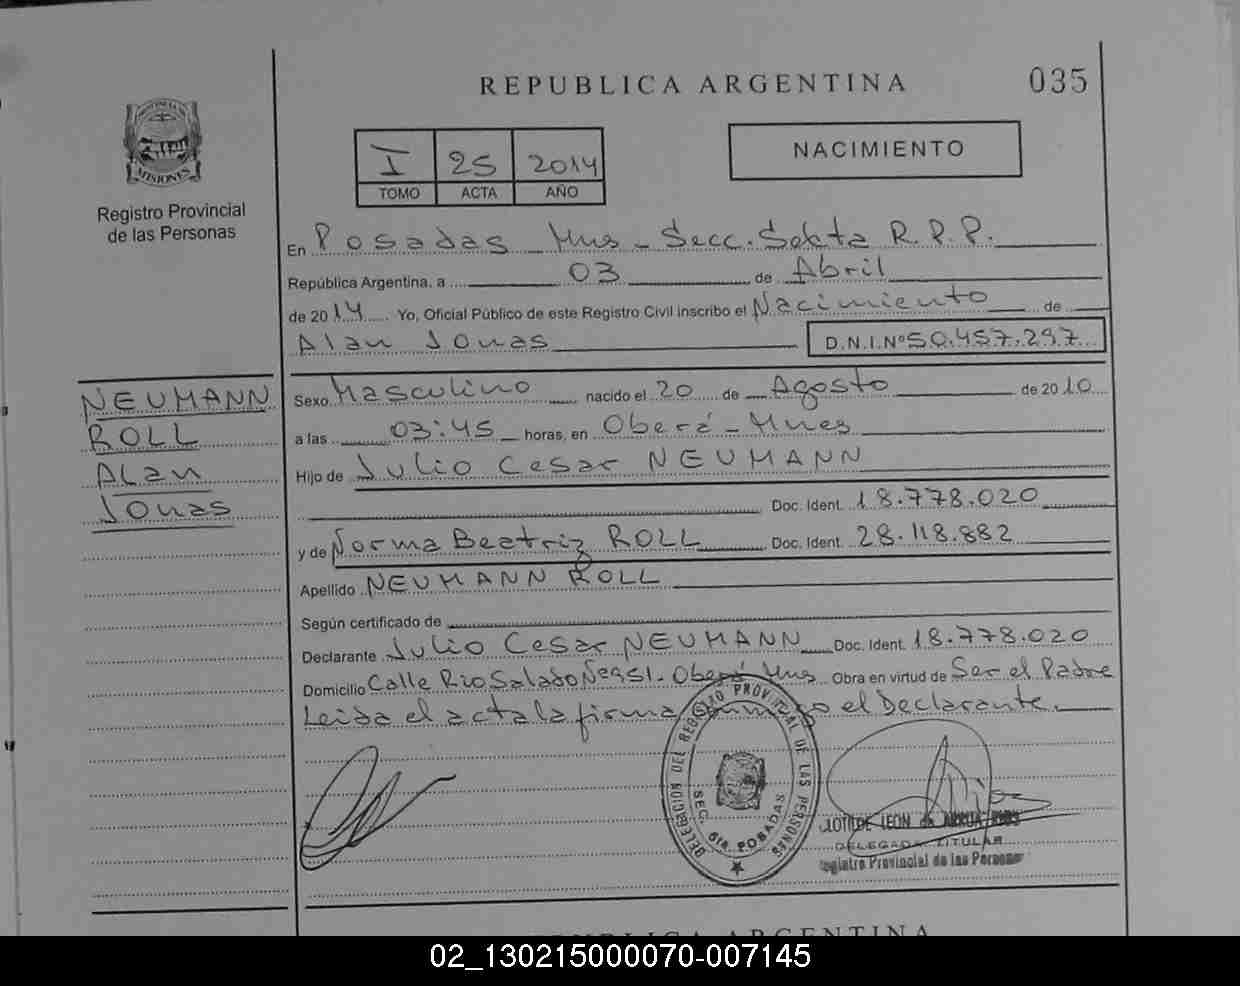 REPUBLICA ARGENTINA
035
PROVINCIA DE
MISIONES
Registro Provincial
de las Personas
I 25 2014
TOMO ACTA AÑO
NACIMIENTO
En Posadas Mns - Secc. Sexta R.P.P.
República Argentina, a 03 de Abril
de 2014 Yo, Oficial Público de este Registro Civil inscribo el Nacimiento de
Alan Jonas D.N.I.Nº 50.457.297
NEUMANN
ROLL
Alan
Jonas
Sexo Masculino nacido el 20 de Agosto de 2010
a las 03:45 horas, en Oberá - Mnes
Hijo de Julio Cesar NEUMANN
Doc. Ident. 18.778.020
y de Norma Beatriz ROLL Doc. Ident. 28.118.882
Apellido NEUMANN ROLL
Según certificado de
Declarante Julio Cesar NEUMANN Doc. Ident. 18.778.020
Domicilio Calle Rio Salado Nº 951 - Oberá Mns Obra en virtud de Ser el Padre
Leida el acta la firma conmigo el Declarante.
DELEGACION DEL REGISTRO PROVINCIAL DE LAS PERSONAS
SEC. 6ta. POSADAS
CLOTILDE LEON de
DELEGADA TITULAR
Registro Provincial de las Personas
REPUBLICA ARGENTINA
02_130215000070-007145